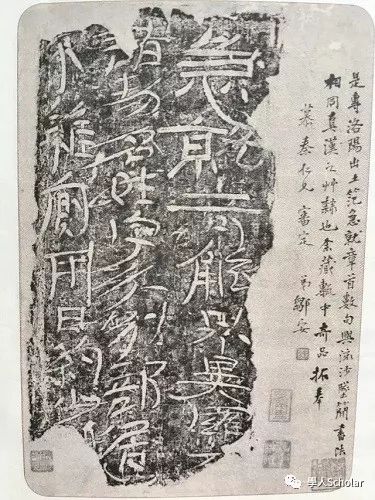 是專洛陽出土范急就章首數句與流沙墜簡書法
相同真漢之艸隸也余藏專中奇品拓奉
仁兄審定 弟鄒安
急就奇觚與眾異羅
諸物名姓字分別部居
不雜廁用日約少
學人Scholar